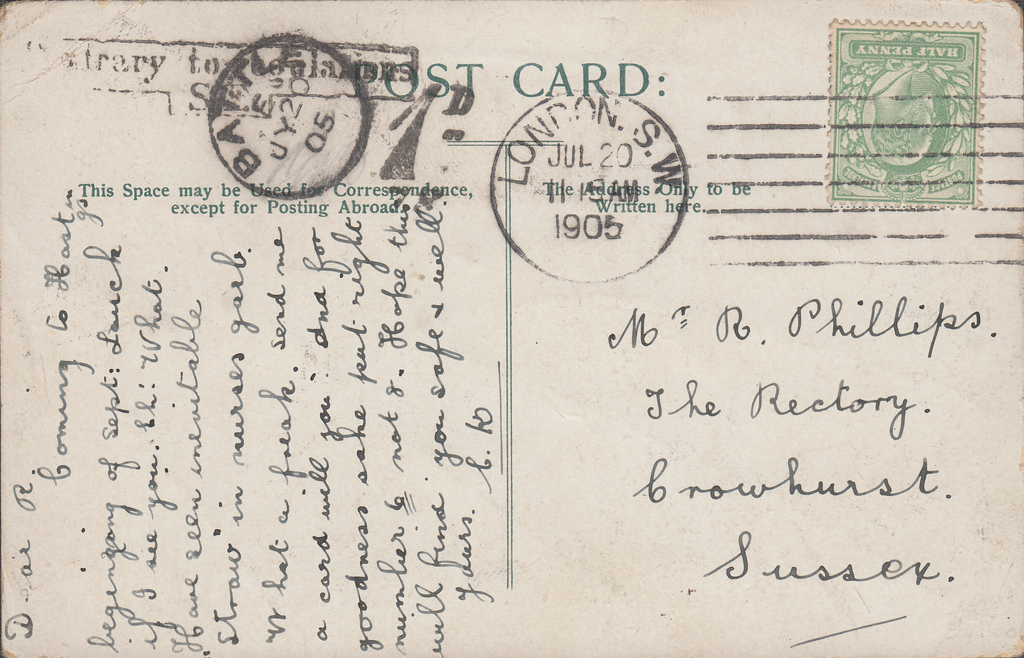 Contrary to Regulations
BATTLE
JY 20
05
1D
POST CARD:
LONDON. S.W
JUL 20
11 15 AM
1905
HALF PENNY
This Space may be Used for Correspondence,
except for Posting Abroad.
The Address Only to be
Written here.
D-ar R.
Coming to Hastings
begenging of Sept: Lauck
if I see you. Eh: What.
Have seen inevitable
Straw in nurses garb.
What a freak. Send me
a card will you and for
goodness sake put right
number 6 not 8. Hope this
will find you safe & well.
Yours. C. W
Mr R. Phillips.
The Rectory.
Crowhurst.
Sussex.